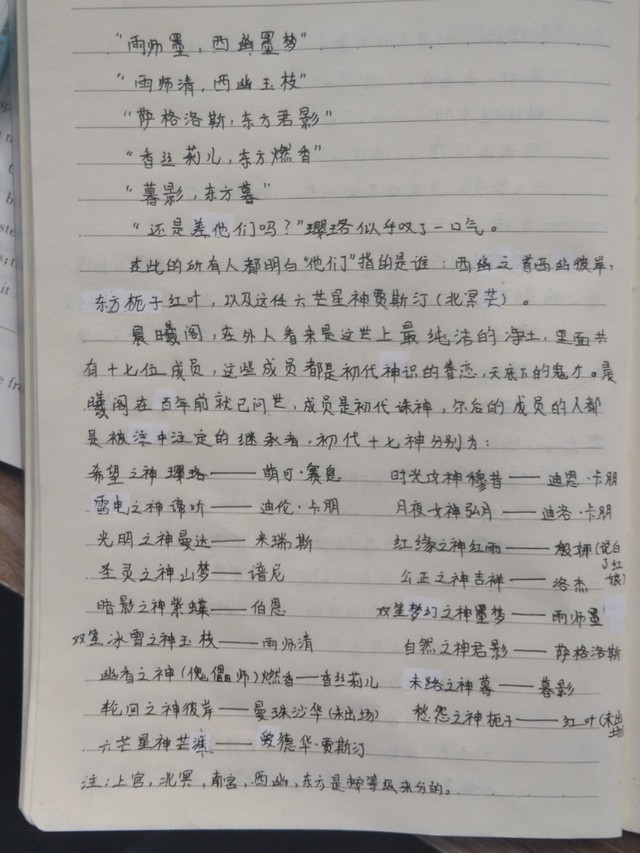 “雨师墨，西幽墨梦”
“雨师清，西幽玉枝”
“萨格洛斯，东方君影”
“香丝莉儿，东方燃香”
“暮影，东方暮”
“还是差他们吗？”璎珞似乎叹了一口气。
在此的所有人都明白“他们”指的是谁：西幽之首西幽彼岸，
东方栀子红叶，以及这任六芒星神贾斯汀（北冥芒）。
晨曦阁，在外人看来是这世上最纯洁的净土，里面共
有十七位成员，这些成员都是初代神识的眷恋，天底下的鬼才。晨
曦阁在百年前就已问世，成员是初代诛神，尔后的成员的人都
是被冥中注定的继承者，初代十七神分别为：
希望之神璎珞——萌可·赛息 时光女神穆昔——迪恩·卡朋
雷电之神谛听——迪伦·卡朋 月夜女神弘月——迪洛·卡朋
光明之神曼达——米瑞斯 红缘之神红雨——殷娜（说白了红娘）
圣灵之神山梦——谱尼 公正之神吉祥——洛杰
暗影之神紫蝶——伯恩 双笙梦幻之神墨梦——雨师墨
双笙冰雪之神玉枝——雨师清 自然之神君影——萨格洛斯
幽香之神（傀儡师）燃香——香丝莉儿 末路之神暮——暮影
轮回之神彼岸——曼珠沙华（未出场） 愁怨之神栀子——红叶（未出场）
六芒星神芒 —— 爱德华·贾斯汀
注：上宫，北冥，南宫，西幽，东方是按等级来分的。